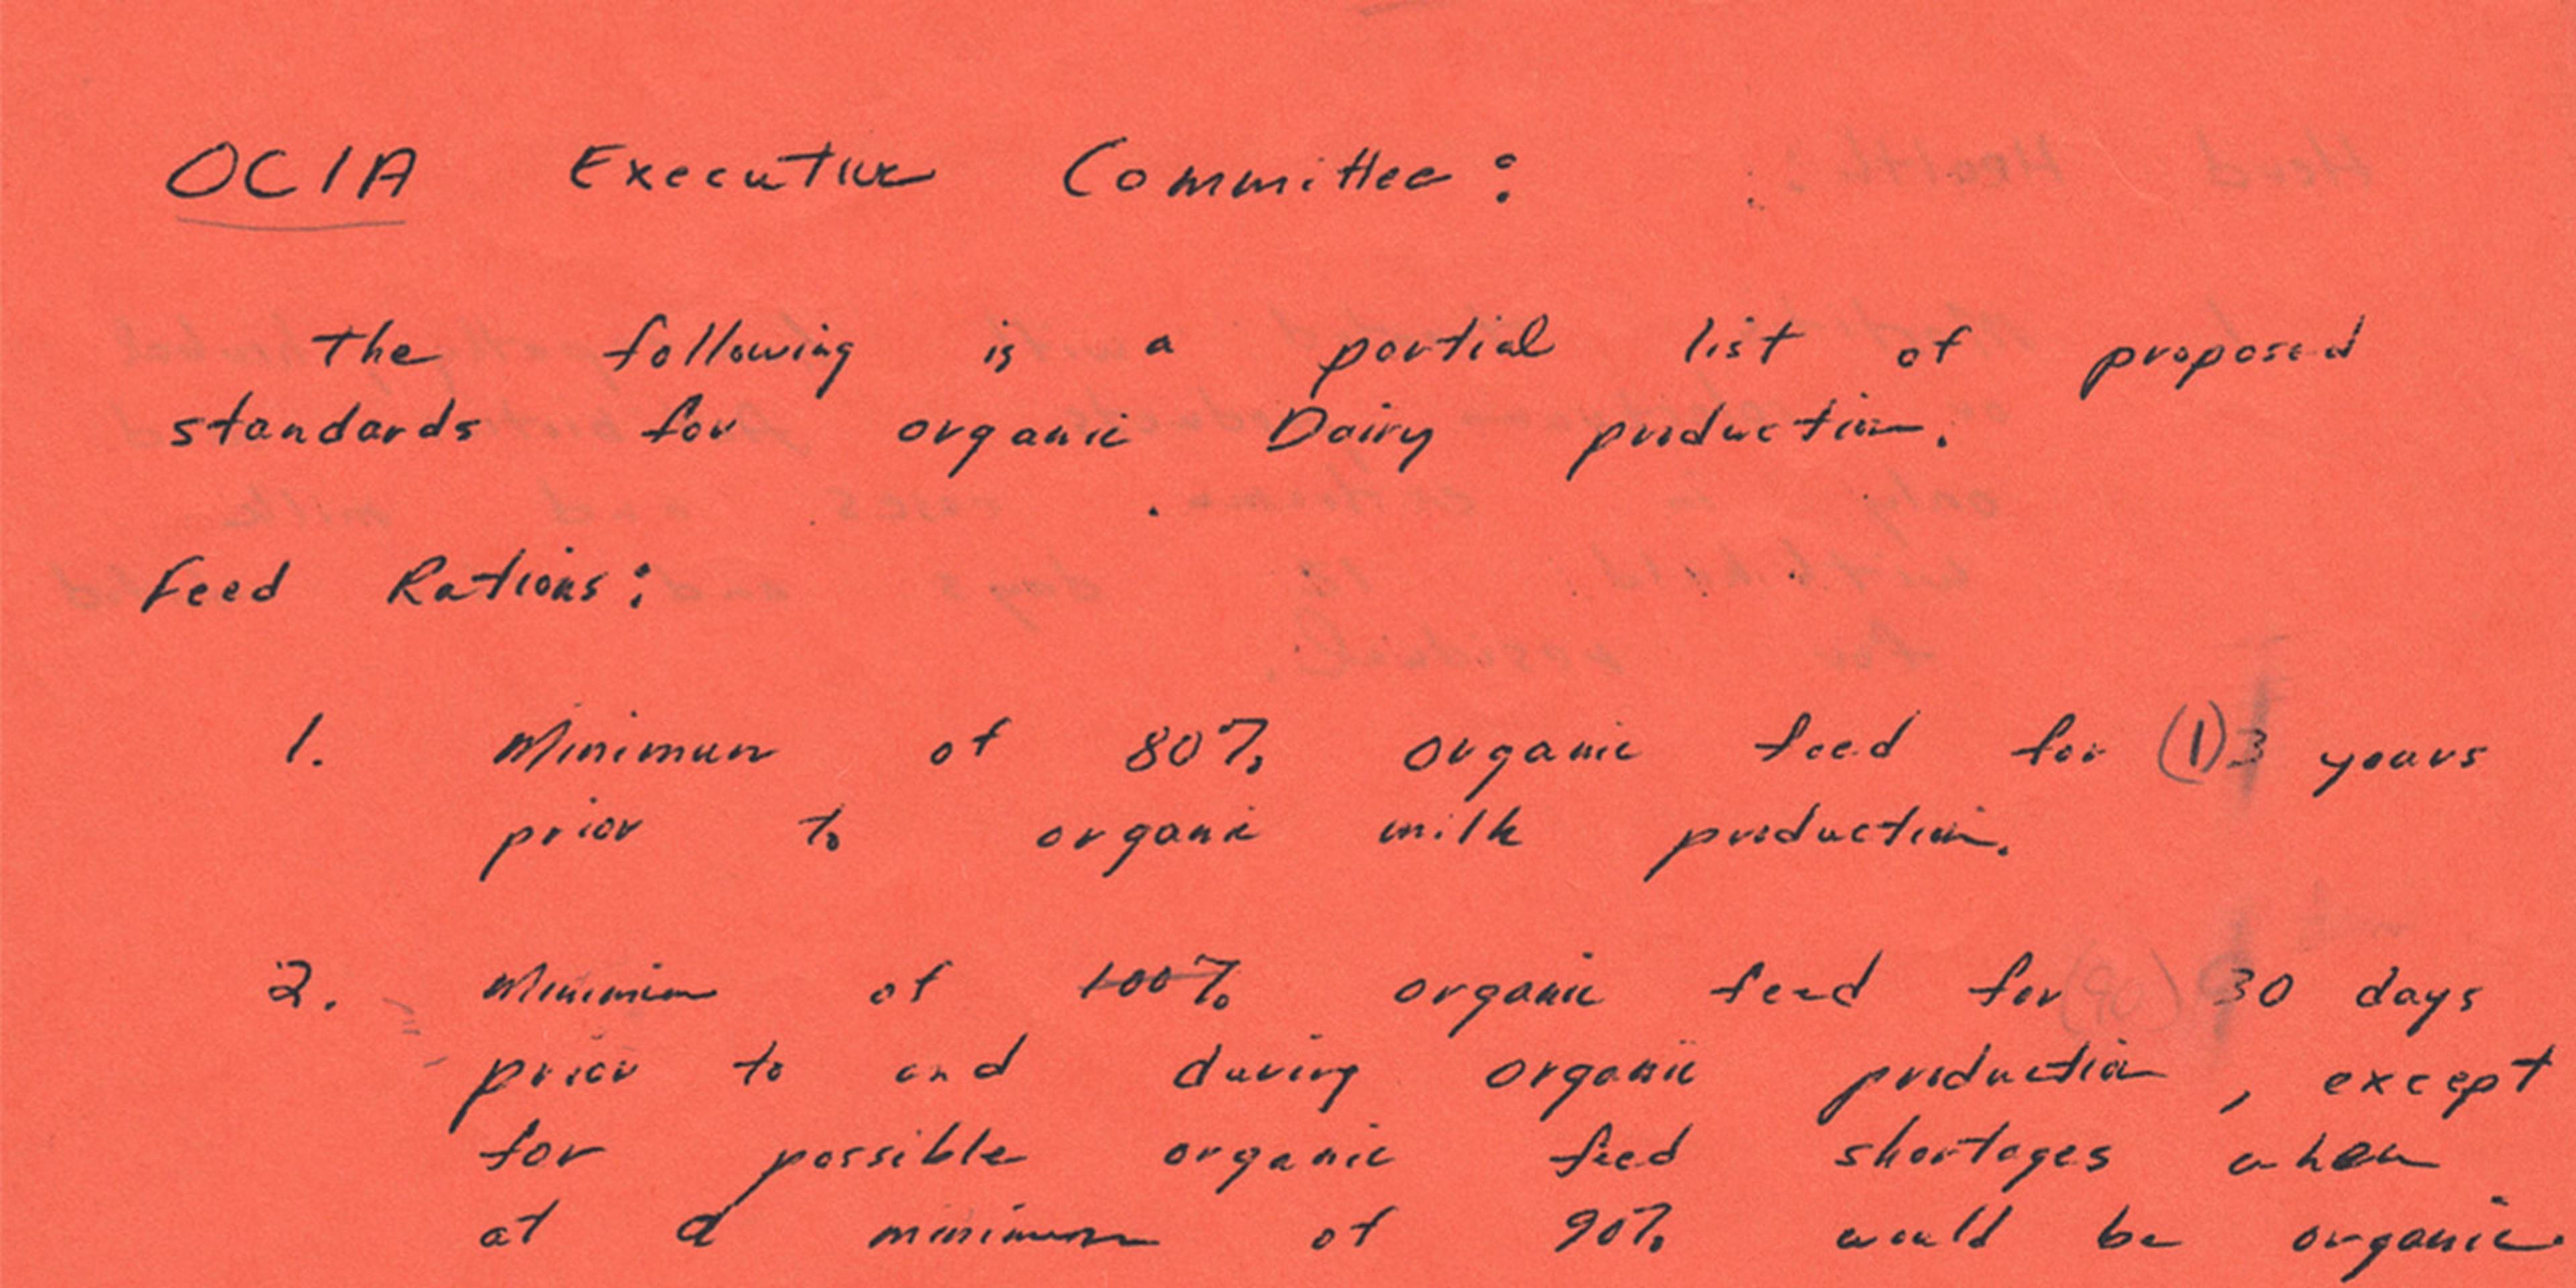 OCIA Executive Committee:
The following is a partial list of proposed
standards for organic Dairy production.
Feed Rations:
1. Minimum of 80% organic feed for (1) 3 years
prior to organic milk production.
2. Minimum of 100% organic feed for (90) 30 days
prior to and during organic production, except
for possible organic feed shortages when
at a minimum of 90% would be organic.